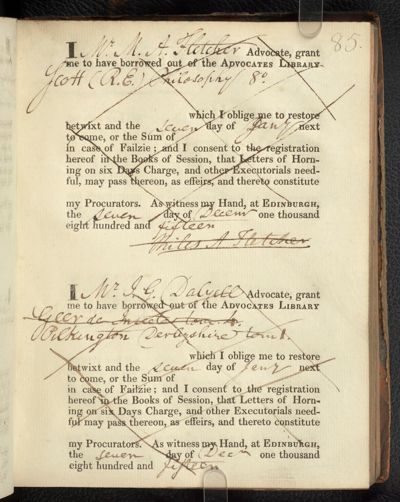 85.
I Mr. M. A. Fletcher Advocate, grant
me to have borrowed out of the ADVOCATES LIBRARY
Scott (R. E.) Philosophy 8o.
which I oblige me to restore
betwixt and the seven day of Jany next
to come, or the Sum of
in case of Failzie; and I consent to the registration
hereof in the Books of Session, that Letters of Horn-
ing on six Days Charge, and other Executorials need-
ful, may pass thereon, as effeirs, and thereto constitute
my Procurators. As witness my Hand, at EDINBURGH,
the seven day of Decemr one thousand
eight hundred and fifteen
Miles A Fletcher
I Mr. J. G. Dalyell Advocate, grant
me to have borrowed out of the ADVOCATES LIBRARY
Geer de Insectes tom. 4.
Pilkington Derbyshire tom 1.
which I oblige me to restore
betwixt and the seven day of Jany next
to come, or the Sum of
in case of Failzie; and I consent to the registration
hereof in the Books of Session, that Letters of Horn-
ing on six Days Charge, and other Executorials need-
ful may pass thereon, as effeirs, and thereto constitute
my Procurators. As witness my Hand, at EDINBURGH,
the seven day of Decr one thousand
eight hundred and fifteen